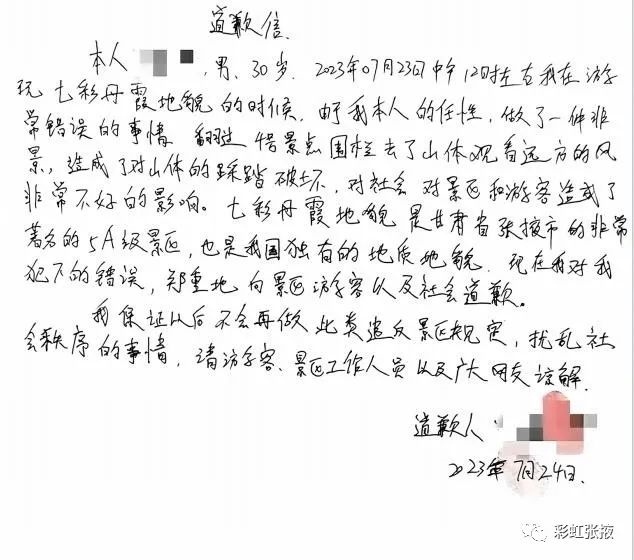 道歉信
本人 ，男，30岁，2023年07月23日中午12时左右我在游
玩七彩丹霞地貌的时候，由于我本人的任性，做了一件非
常错误的事情，翻过 景点围栏去了山体观看远方的风
景，造成了对山体的踩踏破坏，对社会 对景区和游客造成了
非常不好的影响。七彩丹霞地貌是甘肃省张掖市的非常
著名的5A级景区，也是我国独有的地质地貌，现在我对我
犯下的错误，郑重地向景区游客以及社会道歉。
我保证以后不会再做此类违反景区规定，扰乱社
会秩序的事情，请游客、景区工作人员以及广大网友谅解.
道歉人：
2023年7月24日.
彩虹张掖